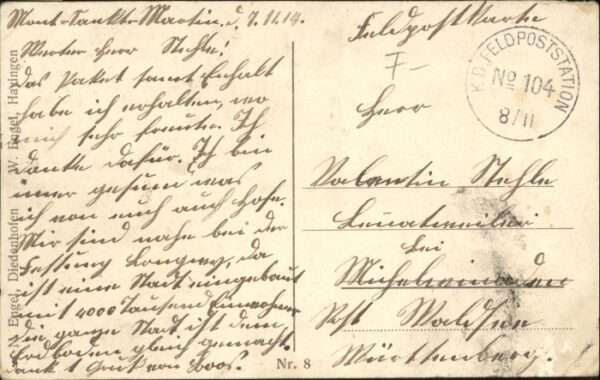 Mont-Sankt-Martin. d. 7.11.14.
Werter Herr Stehle!
Das Paket samt Enhalt
habe ich erhalten, wo
mich sehr freute. Ich
danke dafür. Ich bin
imer gesund was
ich von euch auch hofe.
Mir sind nahe bei der
Festung Longwy, da
ist eine Stadt eingebaut
mit 4000 Tausend Einwohner
die ganze Stadt ist dem
Erdboden gleich gemacht.
Gruß von
Engel, Diedenhofen W. Engel, Hayingen
Nr. 8
Feldpostkarte
K.D. FELDPOSTSTATION
No 104
8/11
Herr
Valentin Stehle
bei
Michelwinaden
Pst Waldsee
Württemberg!